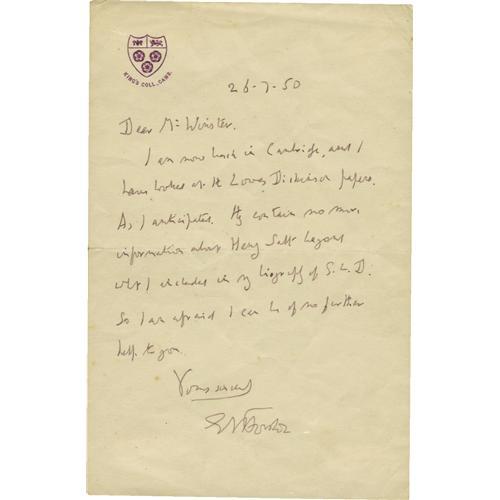 KING'S COLL. CAMB.
26-7-50
Dear Mr Winsten,
I am now back in Cambridge, and I
have looked at the Lowes Dickinson papers.
As I anticipated, they contain no more
information about Henry Salt beyond
what I included in my biography of G.L.D.
So I am afraid I can be of no further
help to you.
Yours sincerely
EMForster